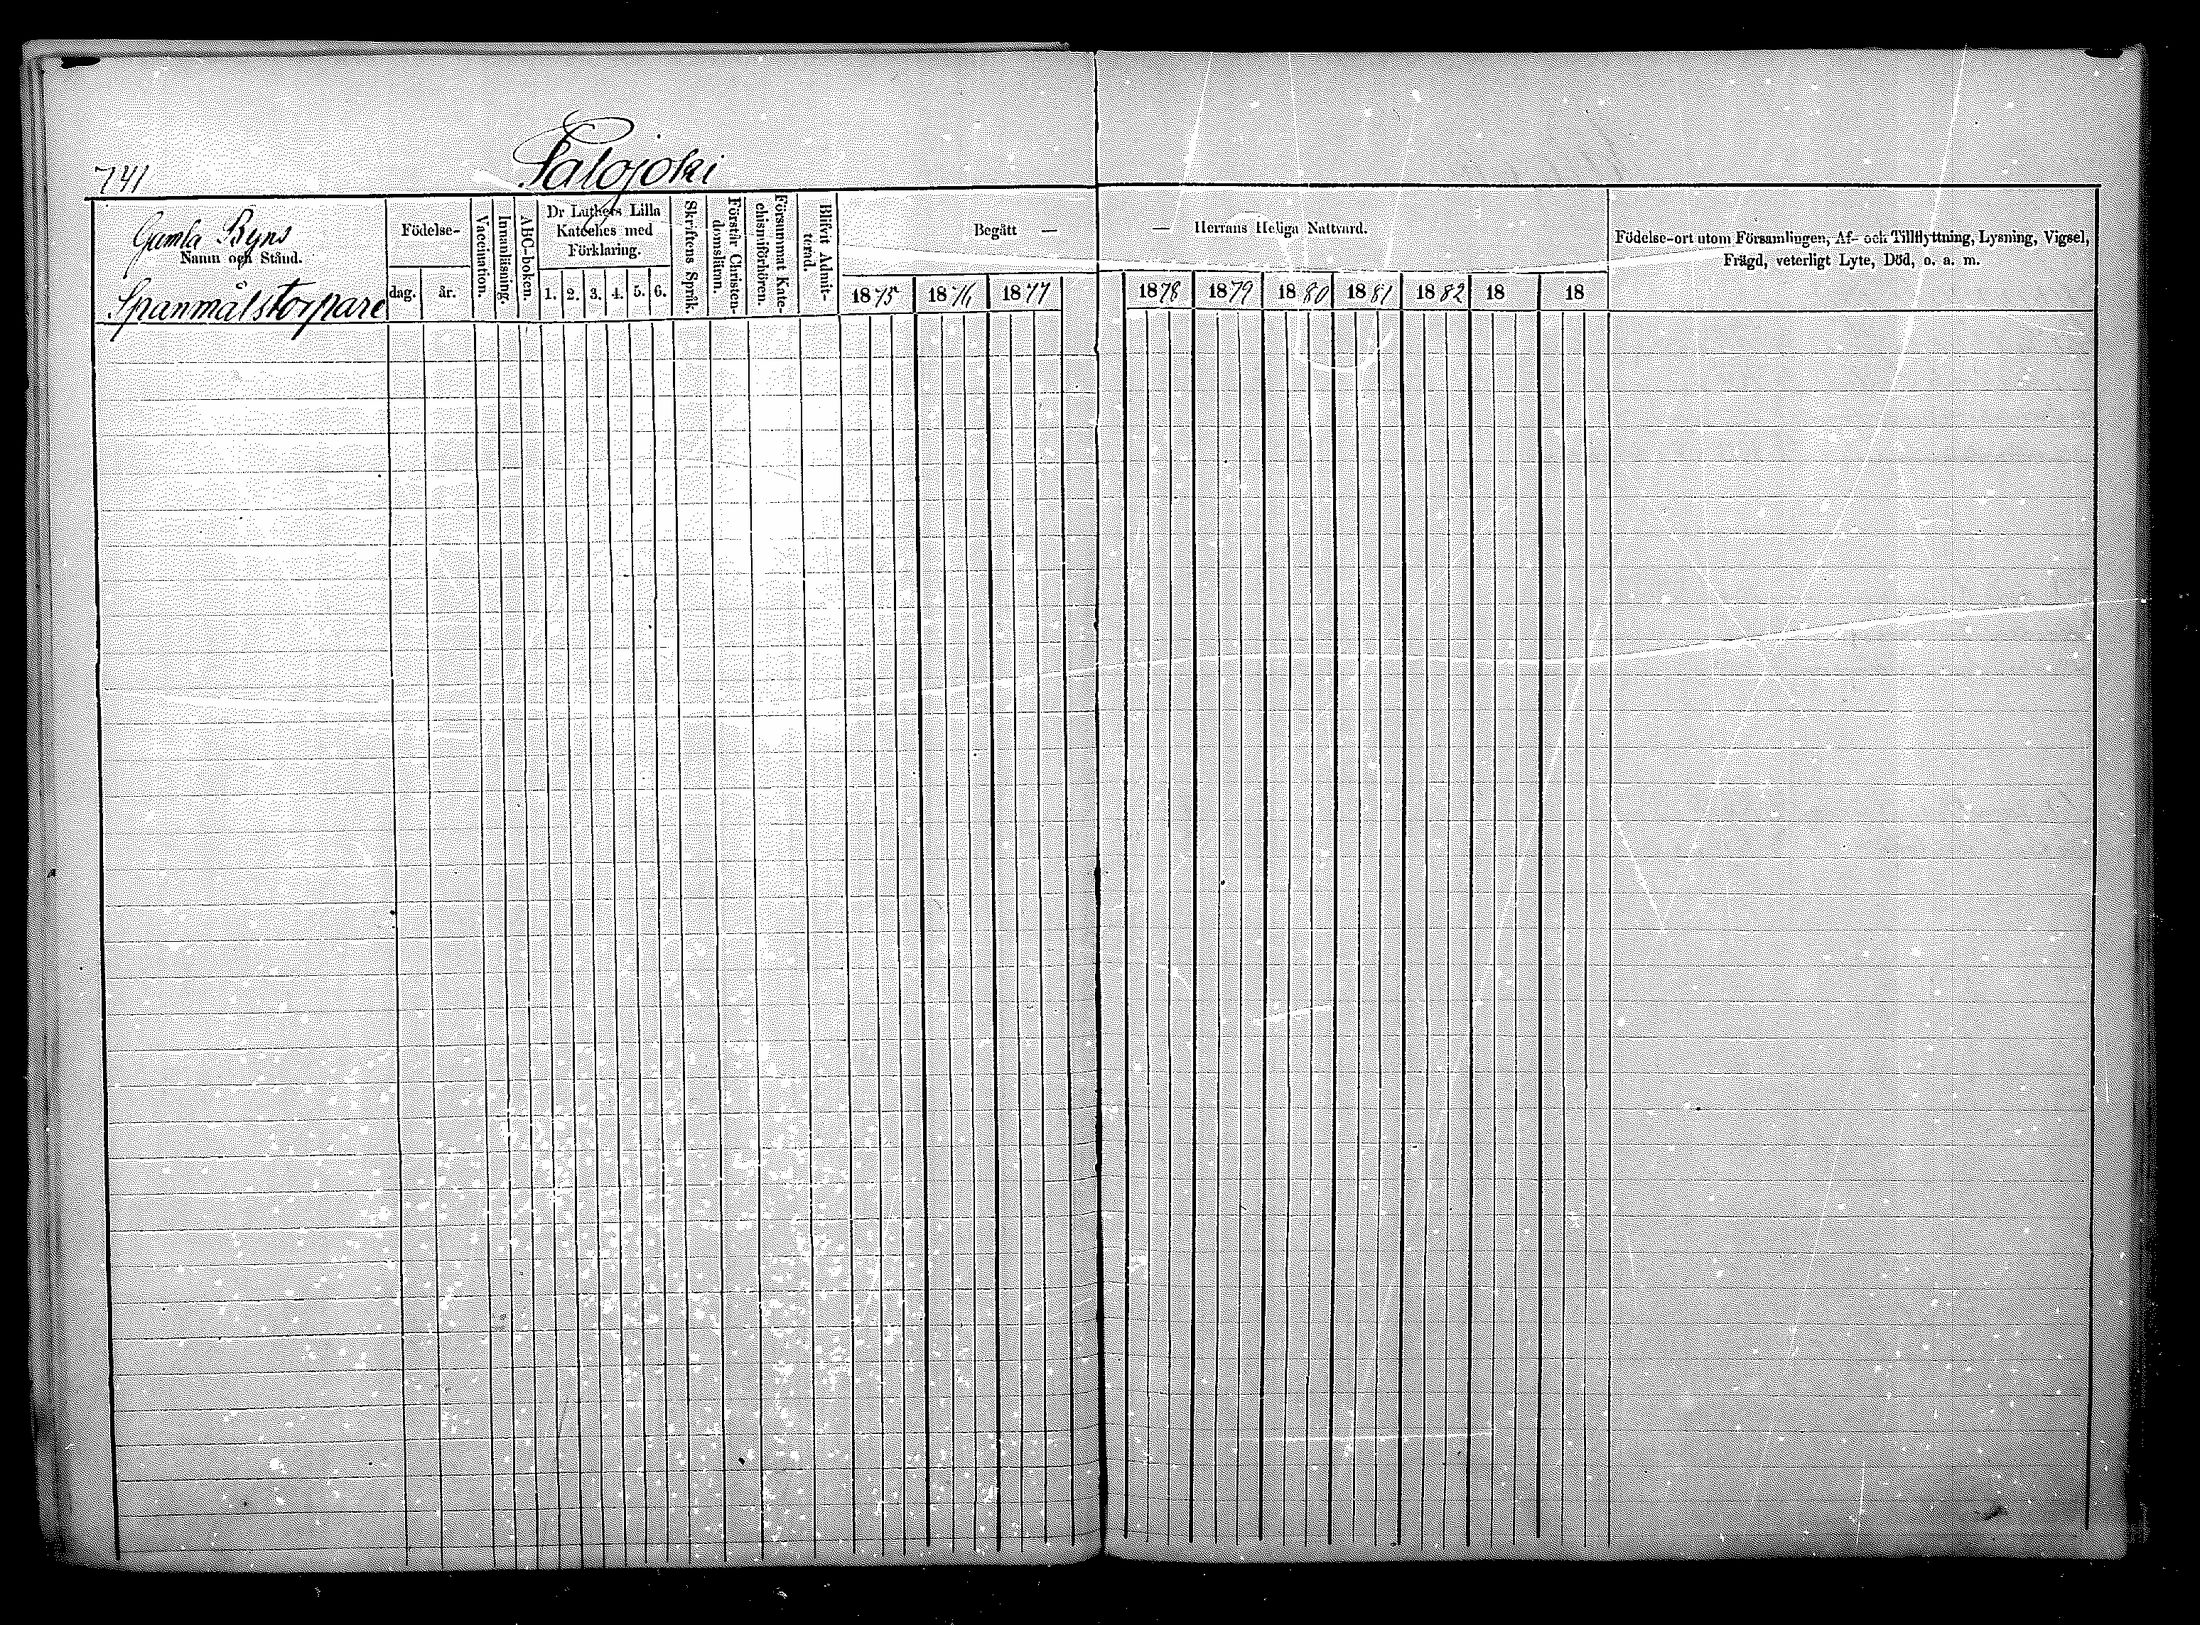 741
Palojoki
Gamla Byns
Namn och Stånd.
Spanmålstorpare
Födelse-
dag.
år.
Vaccination.
Innanläsning.
ABC-boken.
Dr Luthers Lilla
Kateches med
Förklaring.
1. 2. 3. 4. 5. 6.
Skriftens Språk.
Förstår Christen-
domslitnn.
Försummat Kate-
chismiförhören.
Blifvit Admit-
terad.
Begått —
1875 1876 1877
— Herrans Heliga Nattvard.
1878 1879 1880 1881 1882 18 18
Födelse-ort utom Församlingen, Af- och Tillflyttning, Lysning, Vigsel,
Frägd, veterligt Lyte, Död, o. a. m.